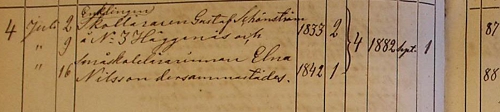 Ynglingen
4 Juli 2 Skolläraren Gustaf Schönström 1833 2
" 9 å No 3 Häggenäs och 4 1882 Sept. 1 87
småskolelärarinnan Elna
" 16 Nilsson dersammastädes. 1842 1 88